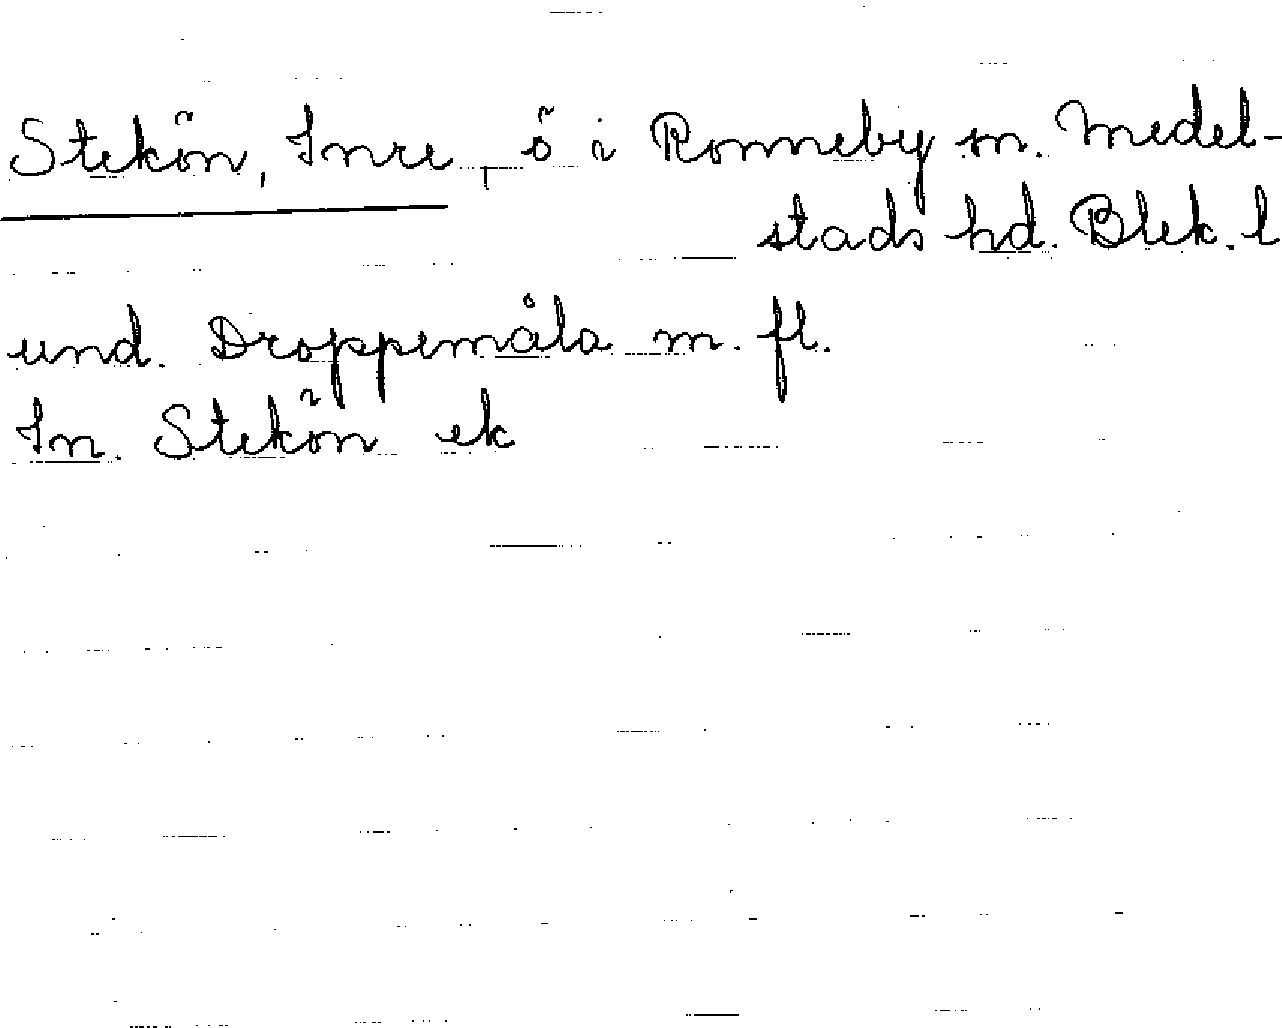 Stekön, Inre, ö i Ronneby sn. Medel-
stads hd. Blek. l
und. Droppemåla m. fl.
In. Stekön ek